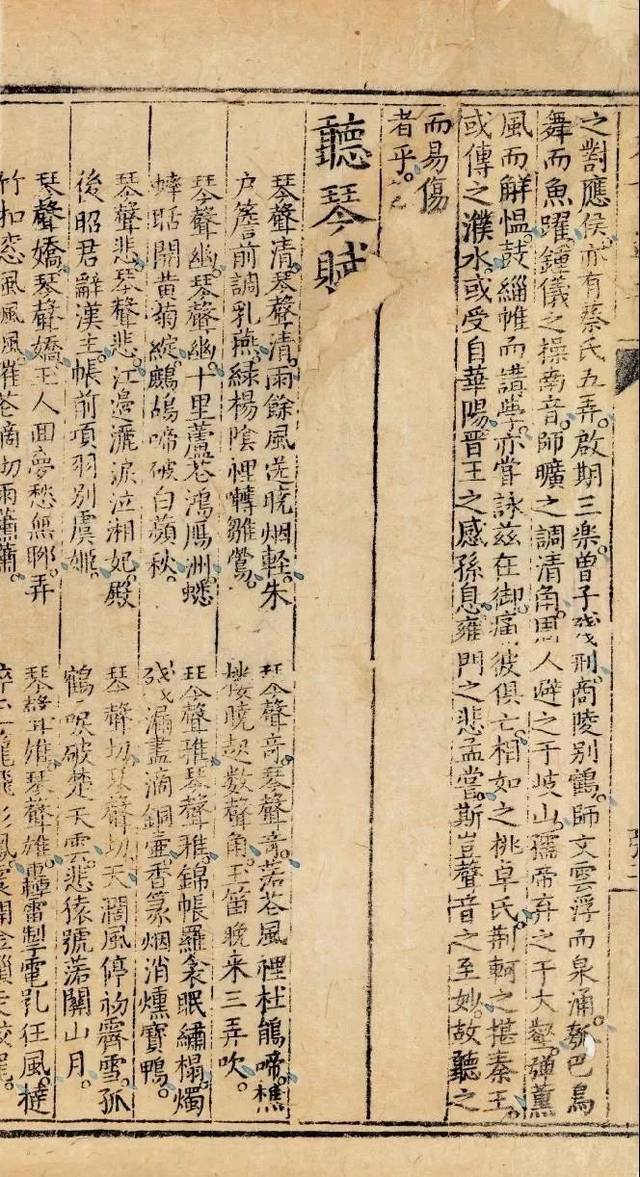 之對應侯。亦有蔡氏五弄。啟期三楽。曽子殘刑。商陵别鶴。師文雲浮而泉涌。瓠巴鳥
舞而魚躍。鍾儀之操南音。師曠之調清角。周人避之于岐山。孺帝弃之于大壑。彈薰
風而觧愠。鼓緇帷而講學。亦嘗詠兹在御。痛彼俱亡。相如之挑卓氏。荆軻之揕秦王。
或傳之濮水。或受自華陽。晋王之感孫息。雍門之悲孟嘗。斯豈聲音之至妙。故聽之
而易傷
者乎。
聽琴賦
琴聲清。琴聲清。雨餘風送曉烟輕。朱
户簷前調乳燕。緑楊陰裡囀雛鶯。
琴聲奇。琴聲奇。落花風裡杜鵑啼。樵
樓曉起數聲角。玉笛晚来三弄吹。
琴聲幽。琴聲幽。十里蘆花鴻鴈洲。蟋
蟀聒開黄菊綻。鷓鴣啼破白蘋秋。
琴聲雅。琴聲雅。錦帳羅衾眠繡榻。燭
殘漏盡滴銅壺。香篆烟消燻寳鴨。
琴聲悲。琴聲悲。江邊灑淚泣湘妃。殿
後昭君辭漢主。帳前項羽别虞姬。
琴聲切。琴聲切。天濶風停初霽雪。孤
鶴唳破楚天雲。悲猿號落關山月。
琴聲嬌。琴聲嬌。玉人回夢愁無聊。弄
竹扣窓風颯颯
琴聲雄。琴聲雄。轟雷掣電乳狂風。撻